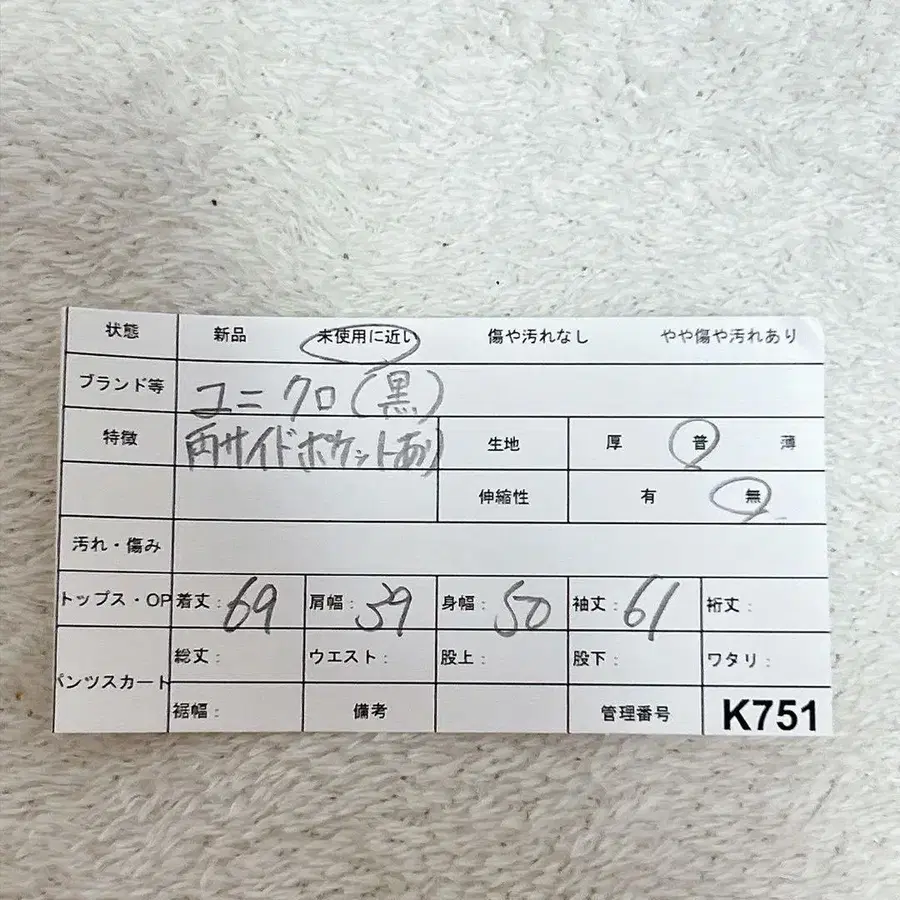 状態 新品 未使用に近い 傷や汚れなし やや傷や汚れあり
ブランド等 ユニクロ(黒)
特徴 両サイドポケットあり 生地 厚 普 薄
伸縮性 有 無
汚れ・傷み
トップス・OP 着丈: 69 肩幅: 39 身幅: 50 袖丈: 61 裄丈:
総丈: ウエスト: 股上: 股下: ワタリ:
パンツスカート
裾幅: 備考 管理番号 K751